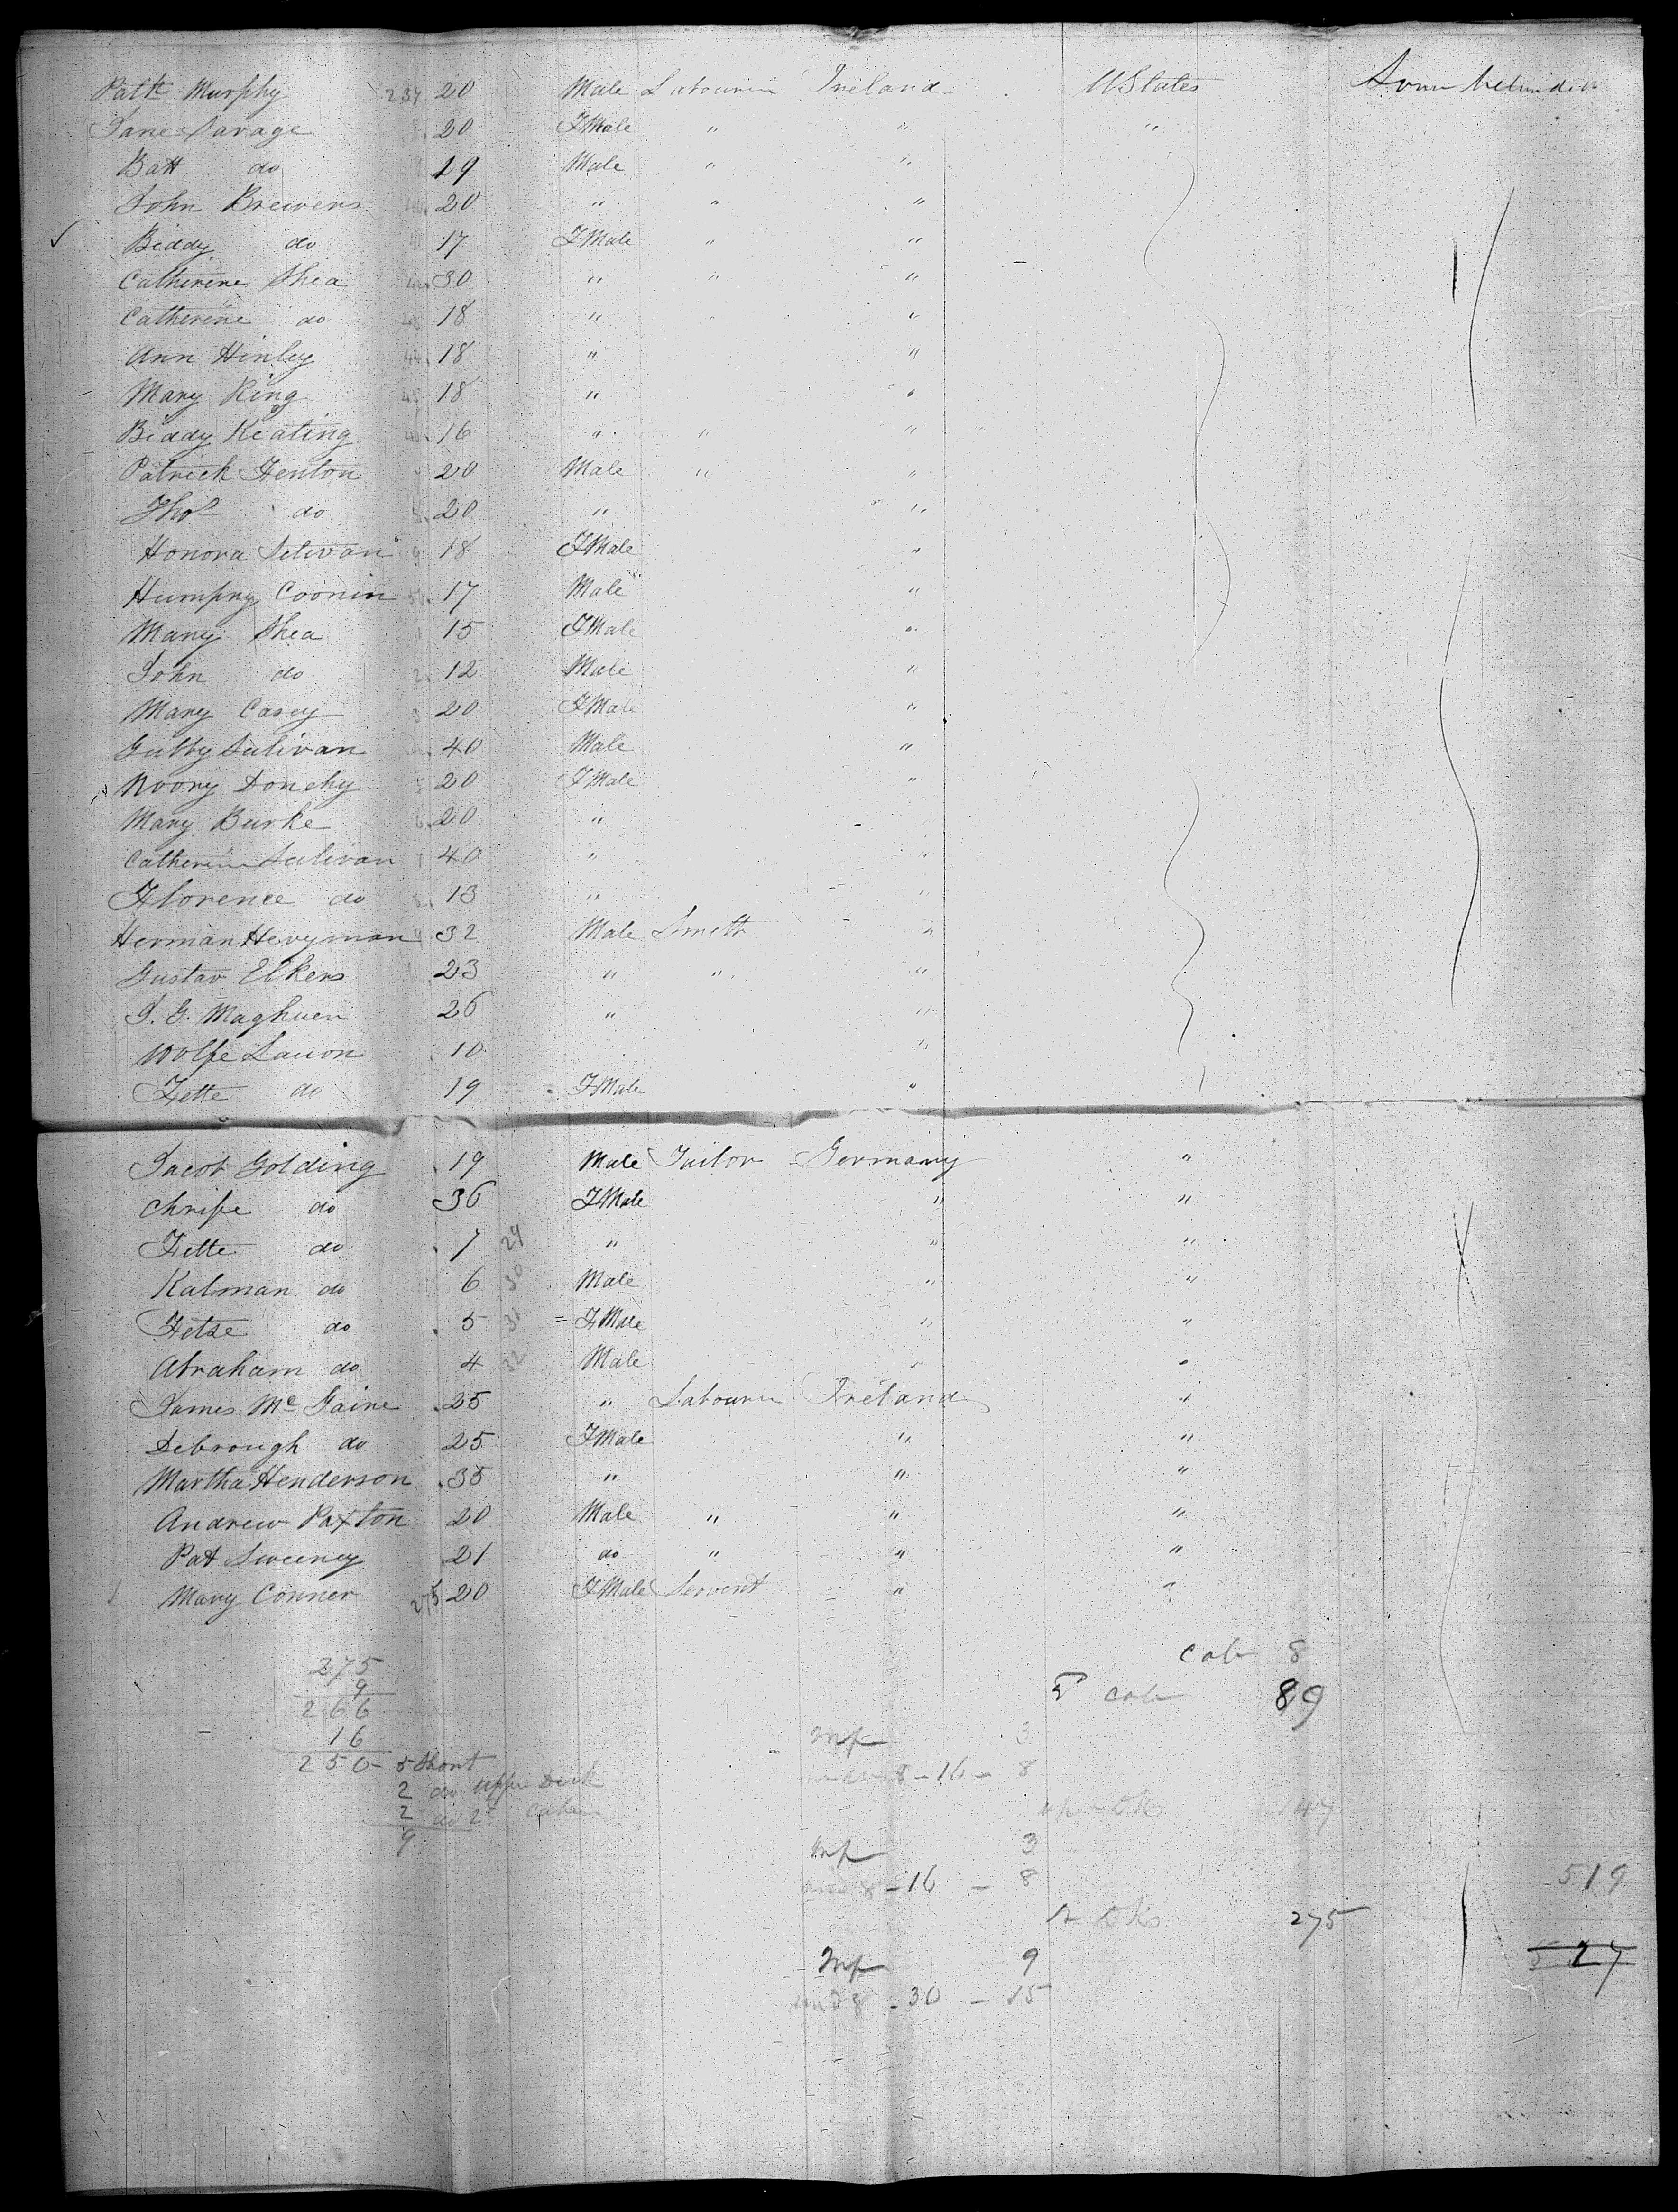 Patk Murphy 237 20 Male Labourer Ireland U States
Jane Savage 20 FMale " " "
Batt do 19 Male " "
John Brewers 20 " " "
Biddy do 17 FMale " "
Catherine Shea 30 " " "
Catherine do 18 " "
Ann Hinley 44 18 " "
Mary King 45 18 " "
Biddy Keating 16 " " "
Patrick Fenton 20 Male " "
Thos do 20 " "
Honora Silivan 18 FMale "
Humpry Coonin 17 Male "
Mary Shea 15 FMale "
John do 12 Male "
Mary Casey 20 FMale "
Gutby Sulivan 40 Male "
Noory Donehy 20 FMale "
Mary Burke 20 "
Catherine Sulivan 40 " "
Florence do 13 " "
Herman Hevyman 32 Male Smith "
Gustav Elkers 23 " " "
J. G. Maghuen 26 " "
Wolfe Lauon 10 "
Fette do 19 FMale "
Jacob Golding 19 Male Tailor Germany "
Chripe do 36 FMale " "
Fette do 7 29 " " "
Kalman do 6 30 Male " "
Fetse do 5 31 = FMale " "
Abraham do 4 32 Male " "
James Mc Gaine 25 " Labourer Ireland "
Debrough do 25 FMale " "
Martha Henderson 35 " " "
Andrew Paxton 20 Male " " "
Pat Sweeney 21 do " " "
Mary Conner 275 20 FMale Servent " "
275
9
266
16
250 - 5 Short
2 do Upper Deck
2 do 2d Cabin
9
Cab 8
2d Cab 89
Inf 3
8 - 16 - 8
147
Inf 3
und 8 - 16 - 8
519
275
Inf 9
527
und 8 - 30 - 15